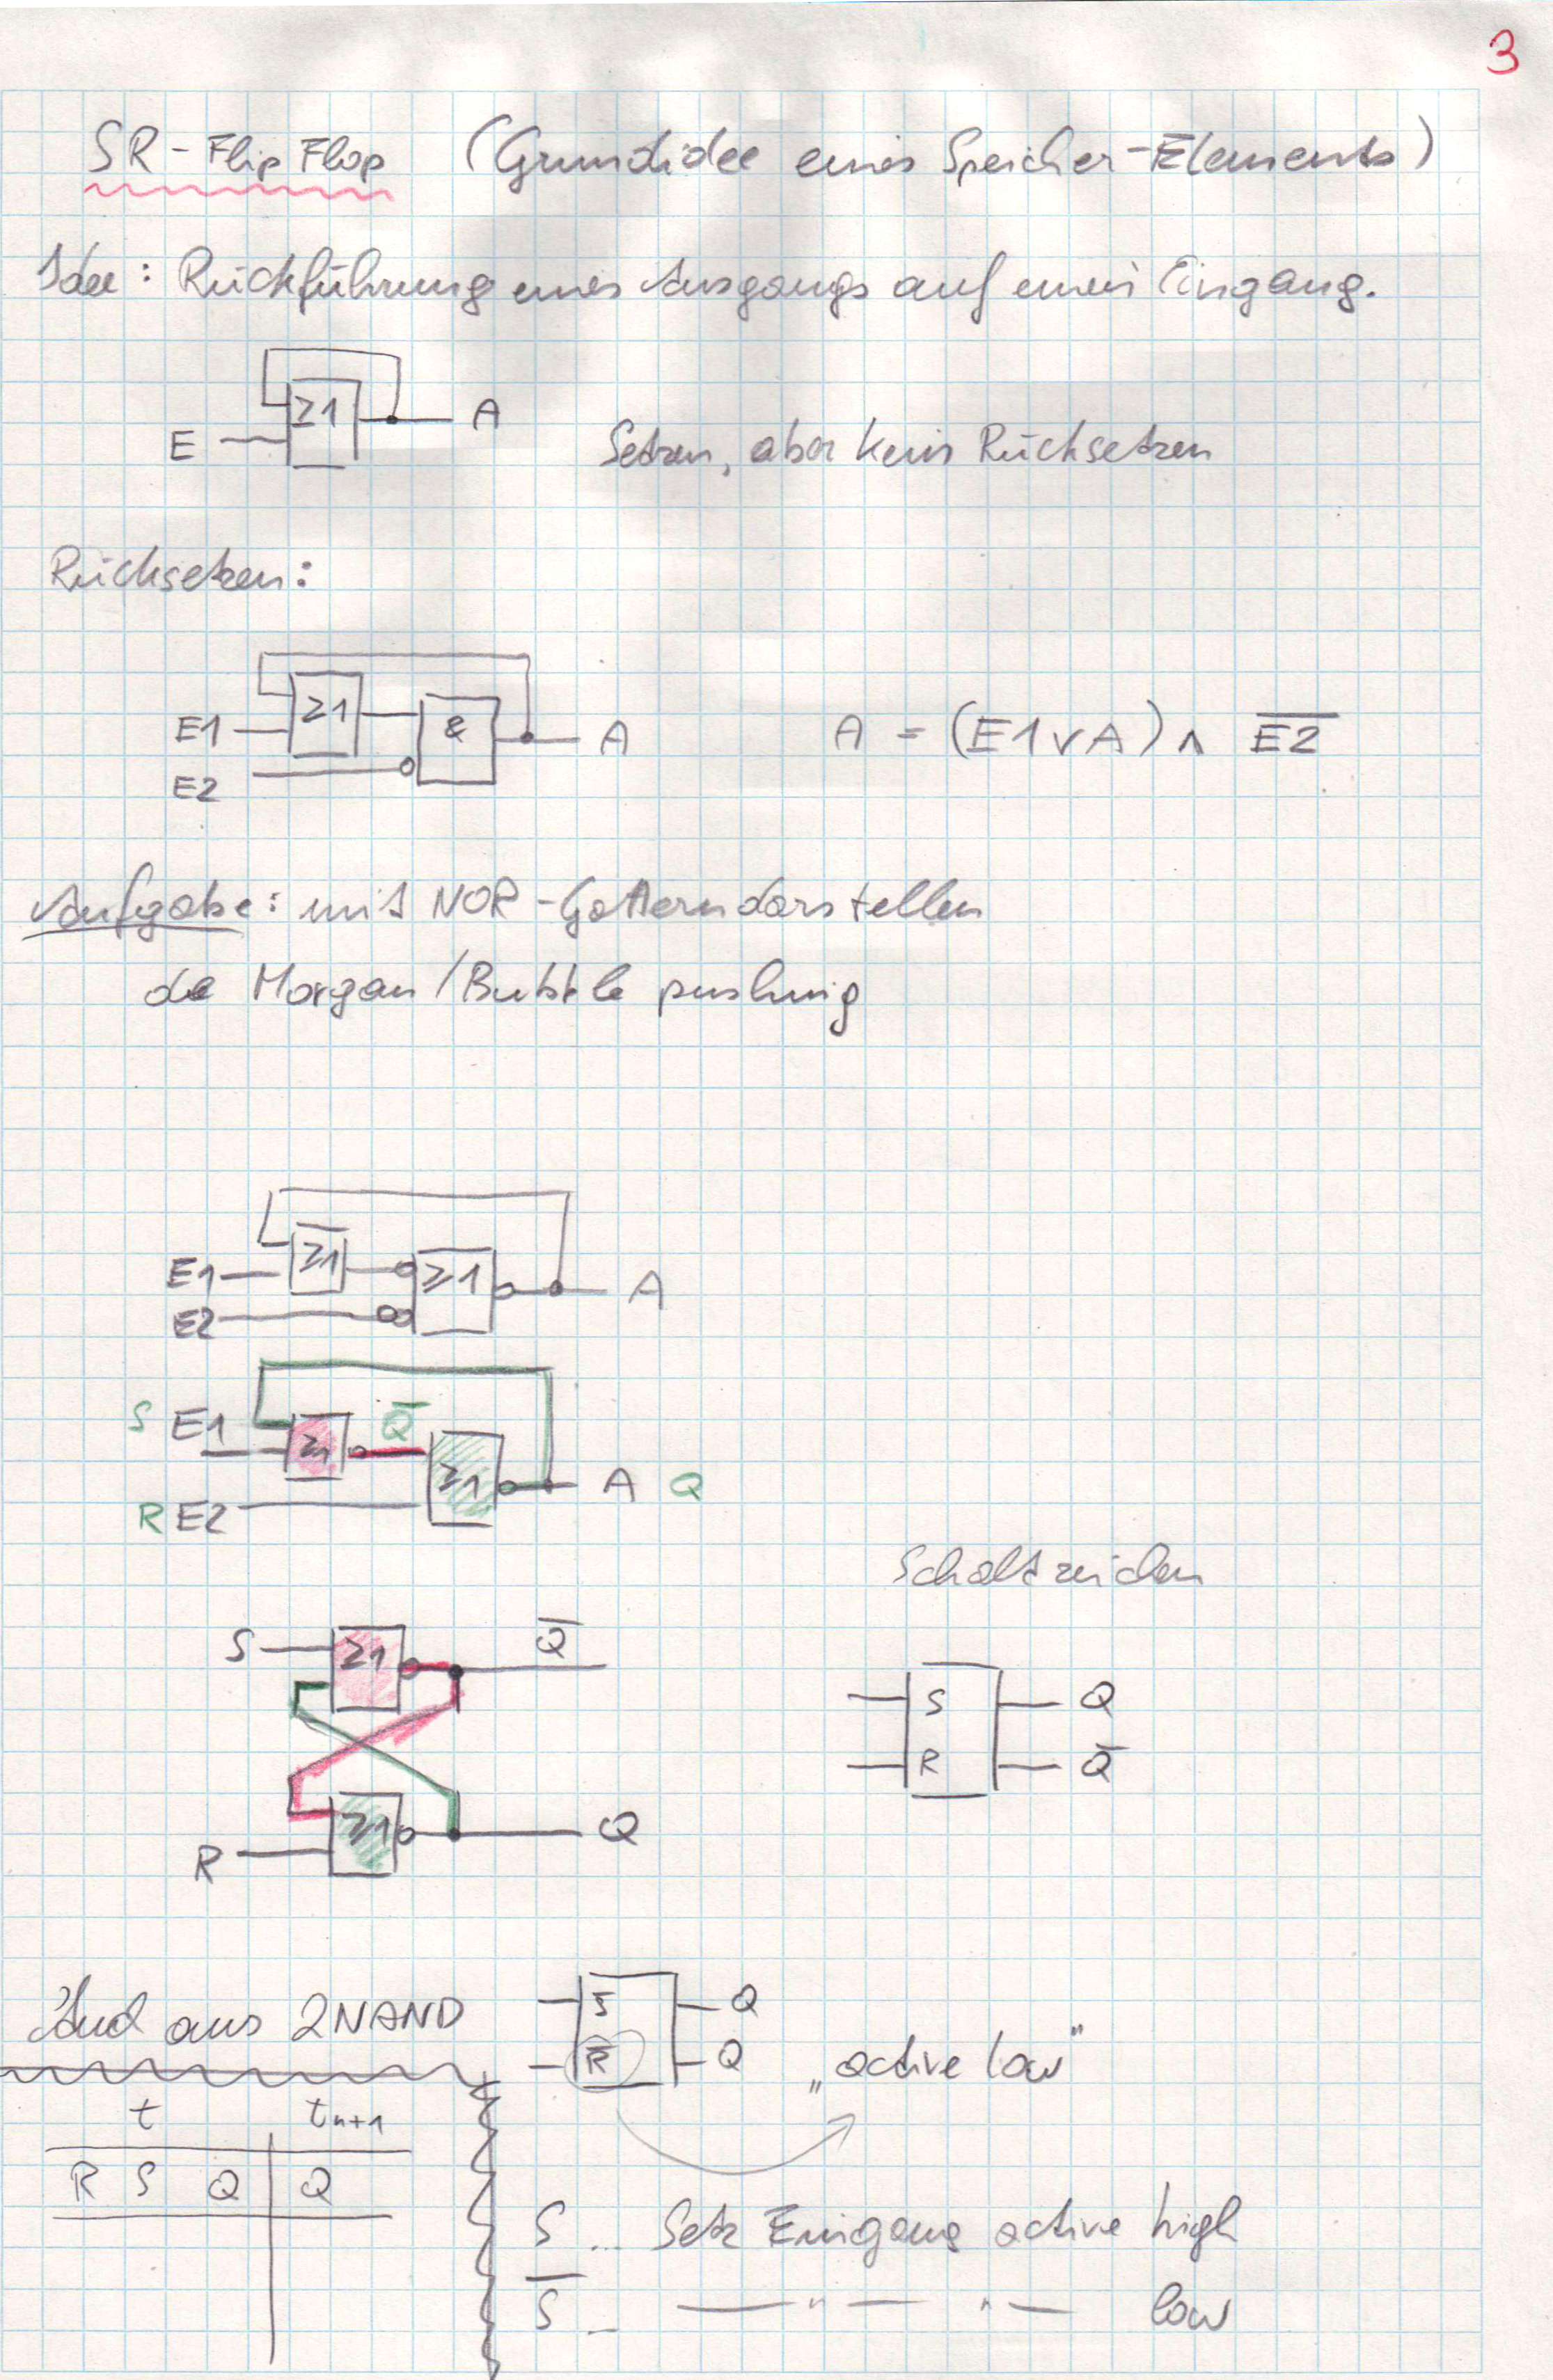 3
SR-Flip Flop (Grundidee eines Speicher-Elements)
Idee: Rückführung eines Ausgangs auf einen Eingang.
≥1
E
A
Setzen, aber kein Rücksetzen
Rücksetzen:
E1 ≥1 & A
E2
A = (E1 ∨ A) ∧ E̅2̅
Aufgabe: mit NOR-Gattern darstellen
de Morgan / Bubble pushing
E1 ≥1 ≥1 A
E2
S E1 ≥1 Q̅ ≥1 A Q
R E2
Schaltzeichen
S ≥1 Q̅
S Q
R Q̅
R ≥1 Q
Aud aus 2NAND
S̅ Q
R̅ Q
„active low"
t tn+1
R S Q Q
S ... Setz Eingang active high
S̅ .. — " — " — low